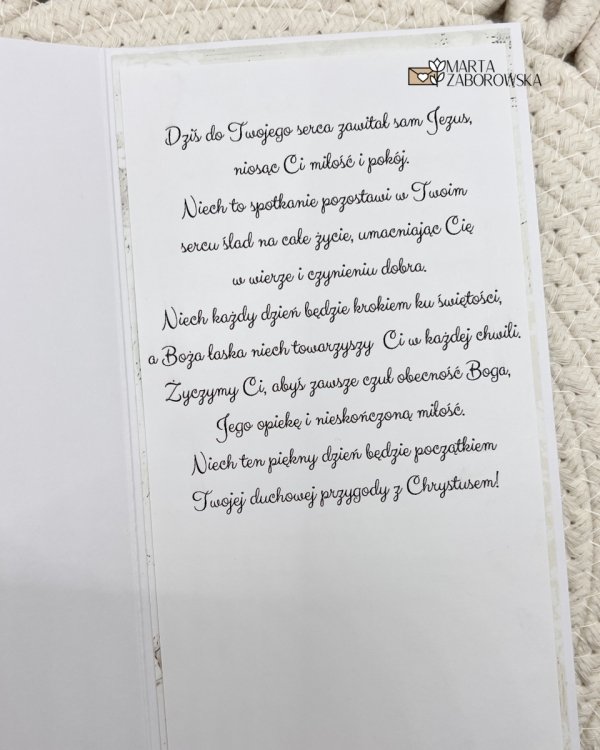 MARTA
ZABOROWSKA
Dziś do Twojego serca zawitał sam Jezus,
niosąc Ci miłość i pokój.
Niech to spotkanie pozostawi w Twoim
sercu ślad na całe życie, umacniając Cię
w wierze i czynieniu dobra.
Niech każdy dzień będzie krokiem ku świętości,
a Boża łaska niech towarzyszy Ci w każdej chwili.
Życzymy Ci, abyś zawsze czuł obecność Boga,
Jego opiekę i nieskończoną miłość.
Niech ten piękny dzień będzie początkiem
Twojej duchowej przygody z Chrystusem!